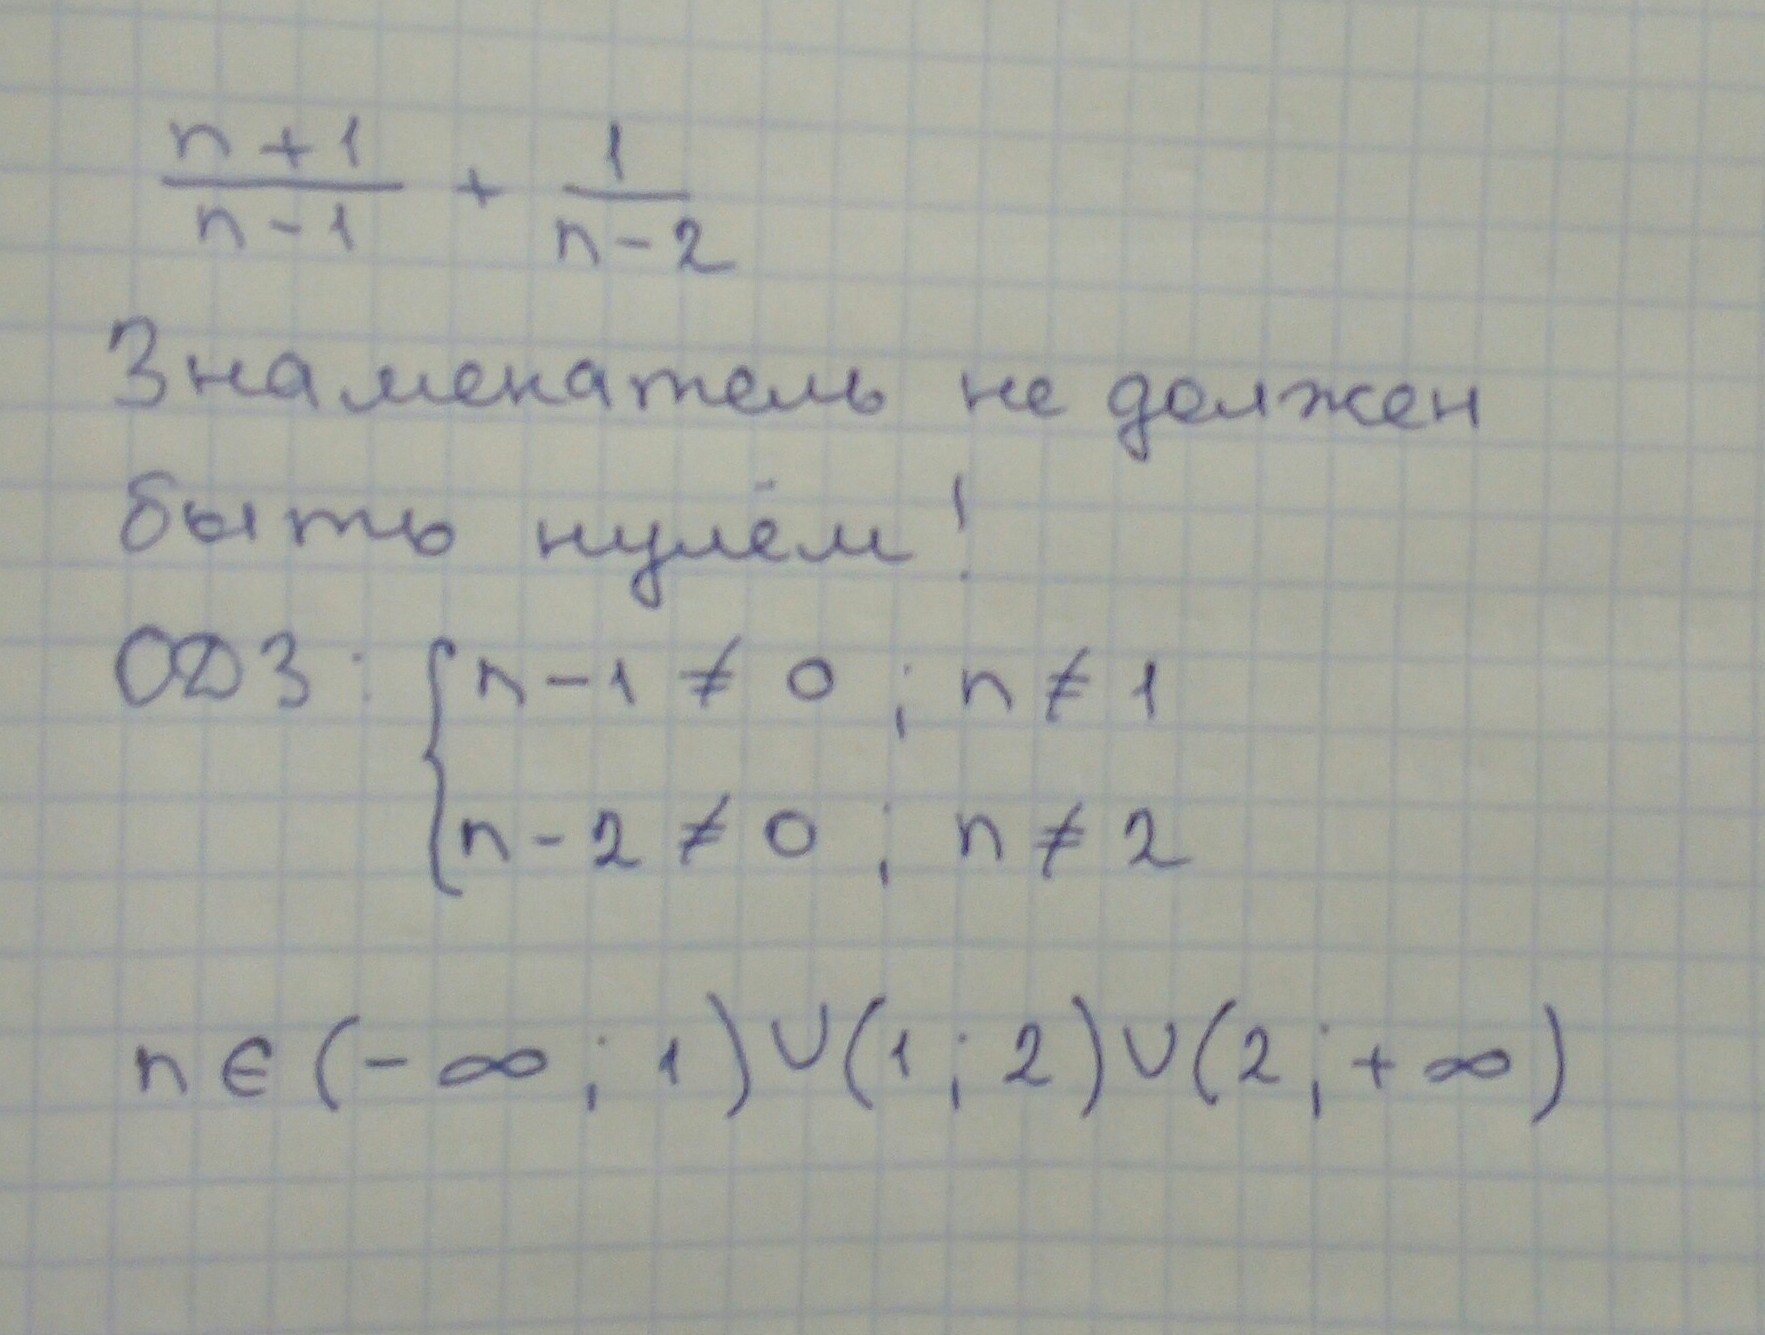 (n+1)/(n-1) + 1/(n-2)
Знаменатель не должен
быть нулём!
ОДЗ: { n-1 ≠ 0; n ≠ 1
n-2 ≠ 0; n ≠ 2
n ∈ (-∞; 1) ∪ (1; 2) ∪ (2; +∞)